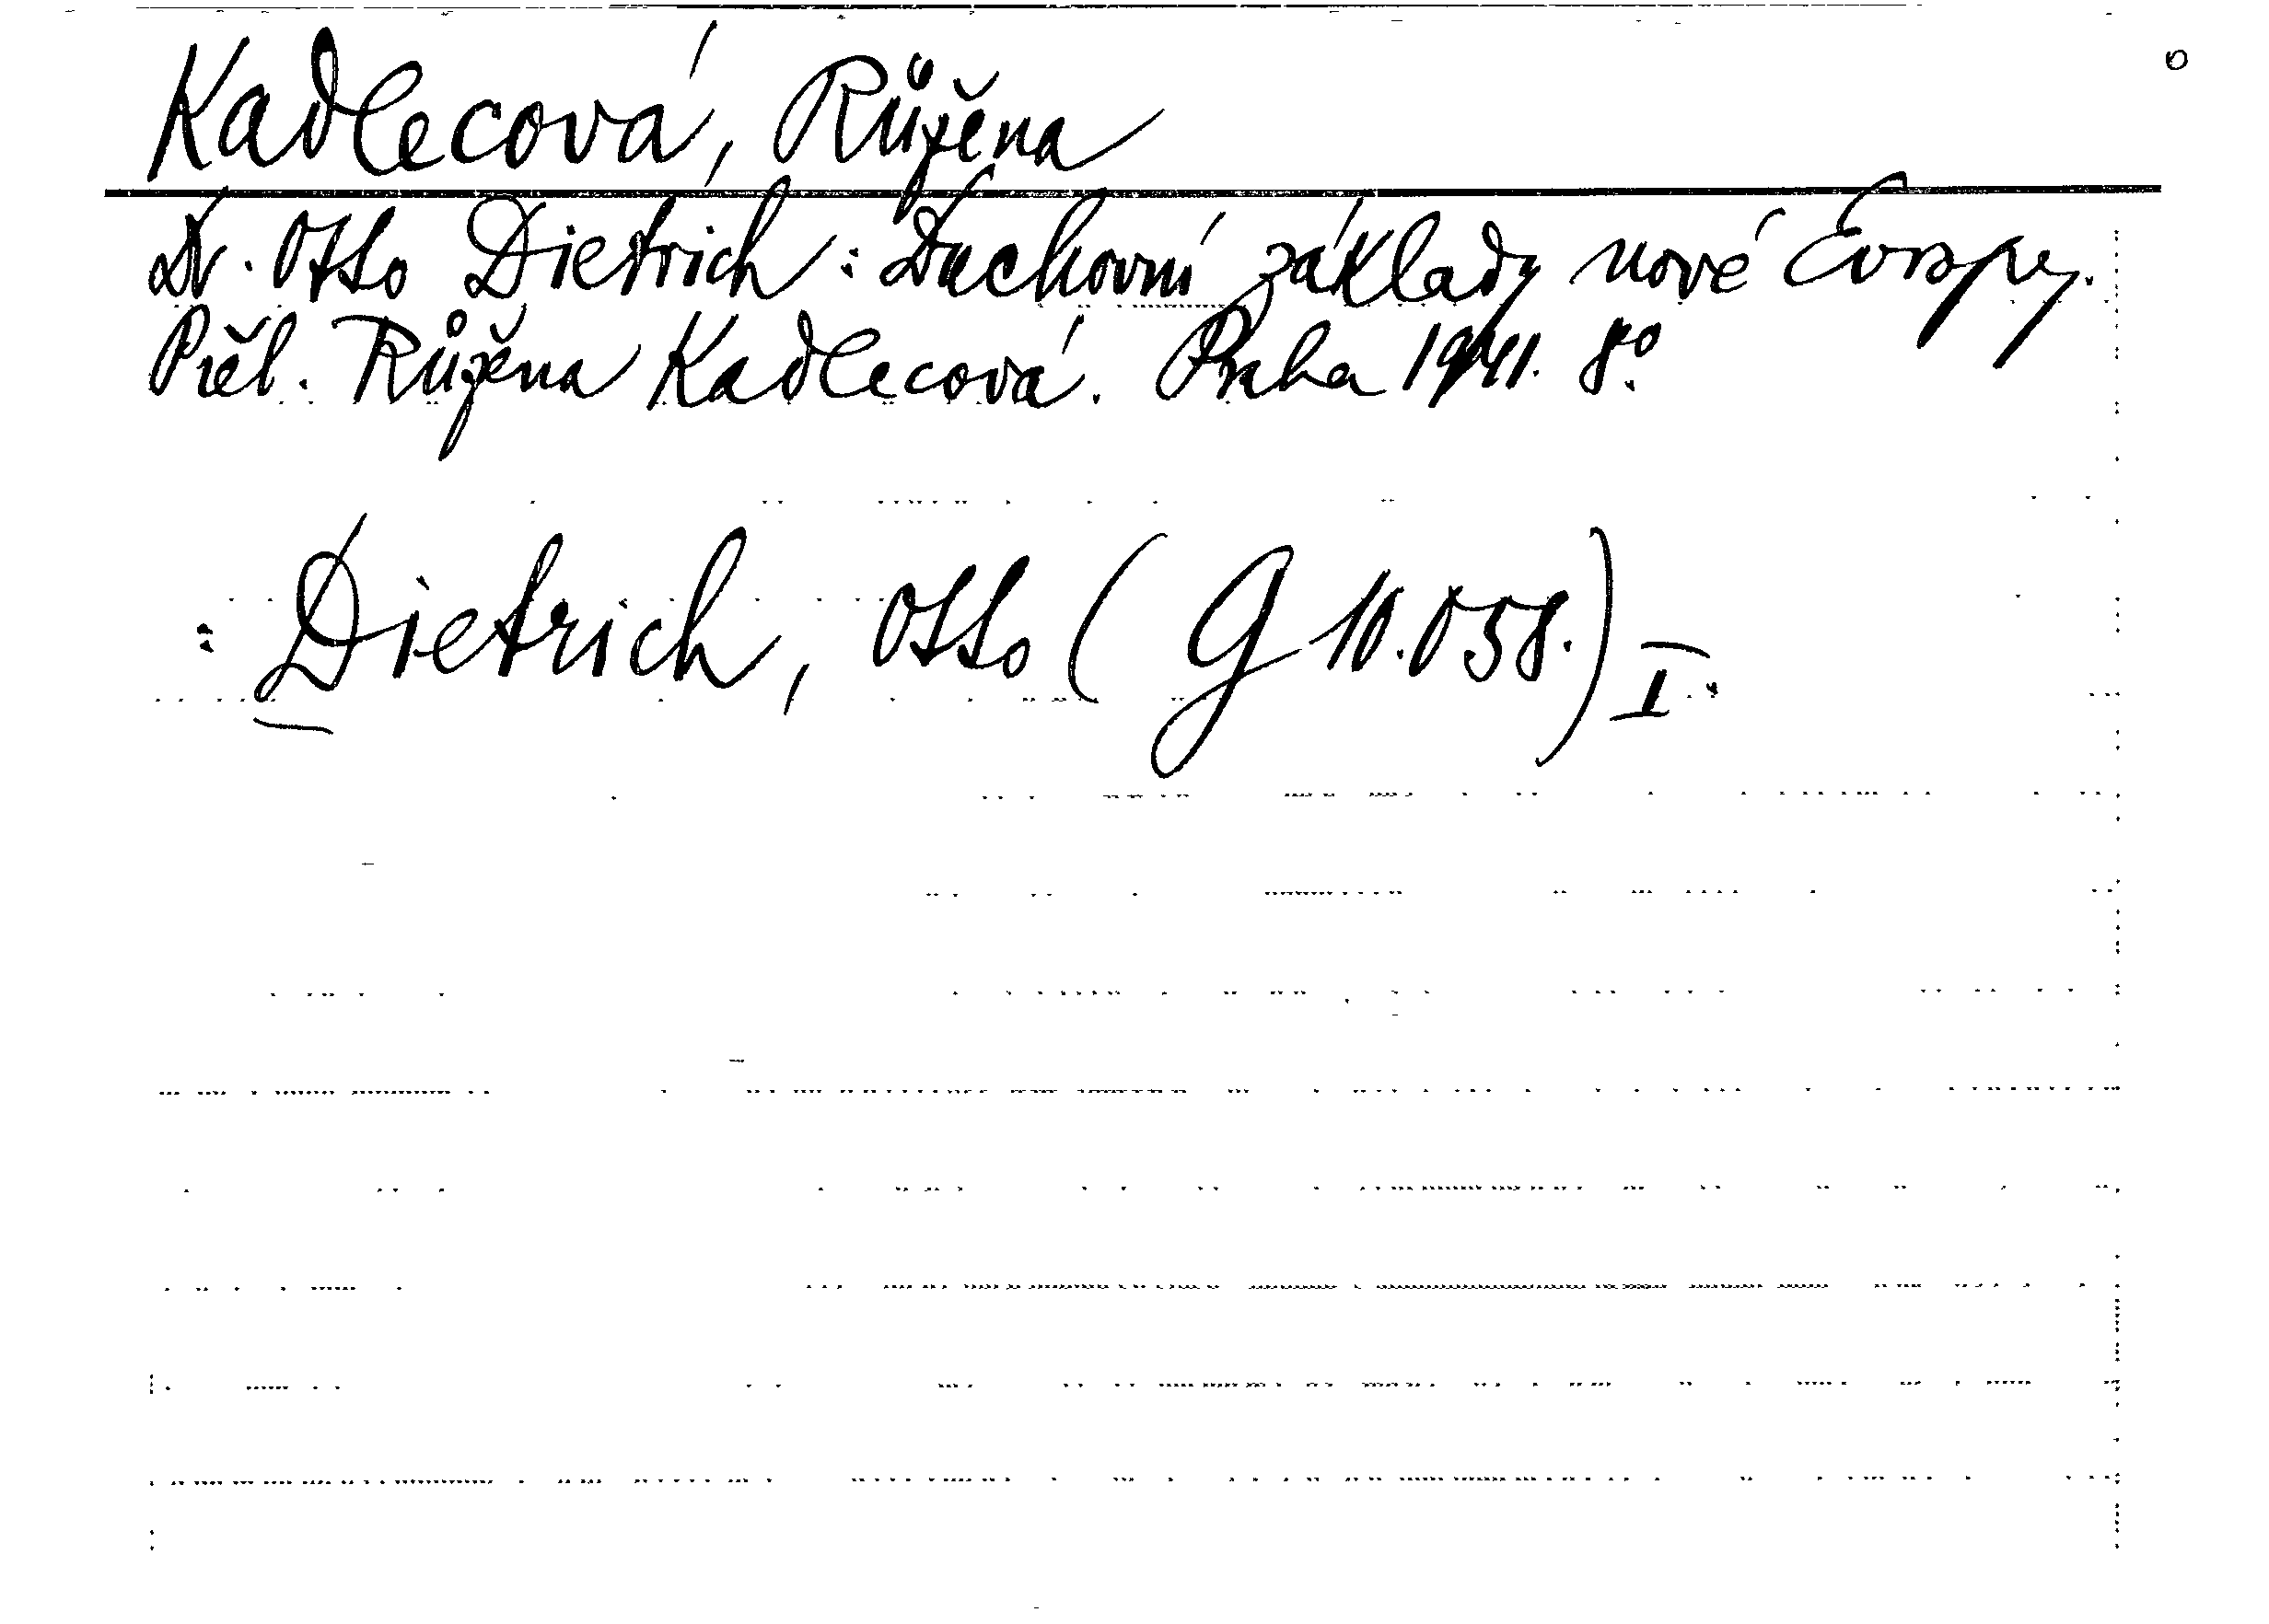 Kadlecová, Růžena
Dr. Otto Dietrich: Duchovní základy nové Evropy.
Přel. Růžena Kadlecová. Praha 1941. 8°.
: Dietrich, Otto (G 10.058.) I.